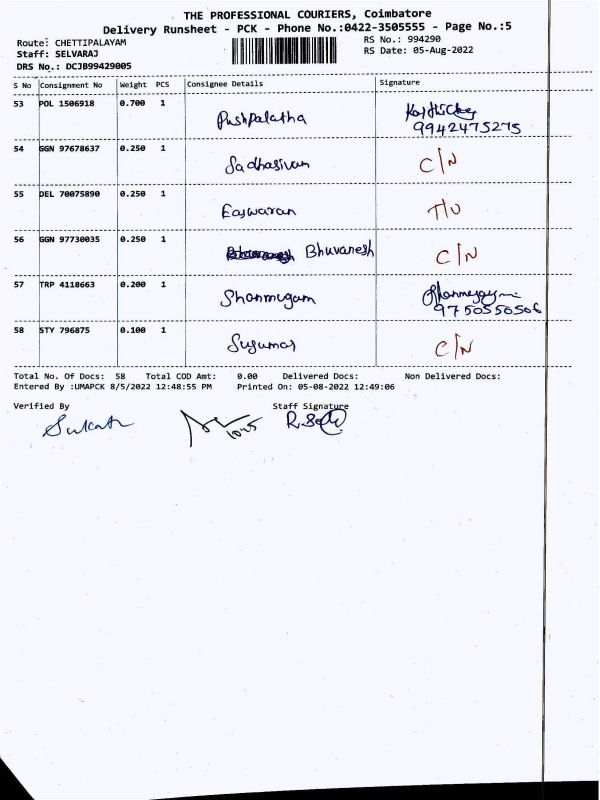 THE PROFESSIONAL COURIERS, Coimbatore
Delivery Runsheet - PCK - Phone No.:0422-3505555 - Page No.:5
Route: CHETTIPALAYAM RS No.: 994290
Staff: SELVARAJ RS Date: 05-Aug-2022
DRS No.: DCJB99429005
S No Consignment No Weight PCS Consignee Details Signature
53 POL 1506918 0.700 1 Pushpalatha
9942475275
54 GGN 97678637 0.250 1 Sadhasivam C/N
55 DEL 70075890 0.250 1 Easwaran T/U
56 GGN 97730035 0.250 1 Bhuvanesh C/N
57 TRP 4118663 0.200 1 Shanmugam
9750550506
58 STY 796875 0.100 1 Sugumar C/N
Total No. Of Docs: 58 Total COD Amt: 0.00 Delivered Docs: Non Delivered Docs:
Entered By :UMAPCK 8/5/2022 12:48:55 PM Printed On: 05-08-2022 12:49:06
Verified By Staff Signature